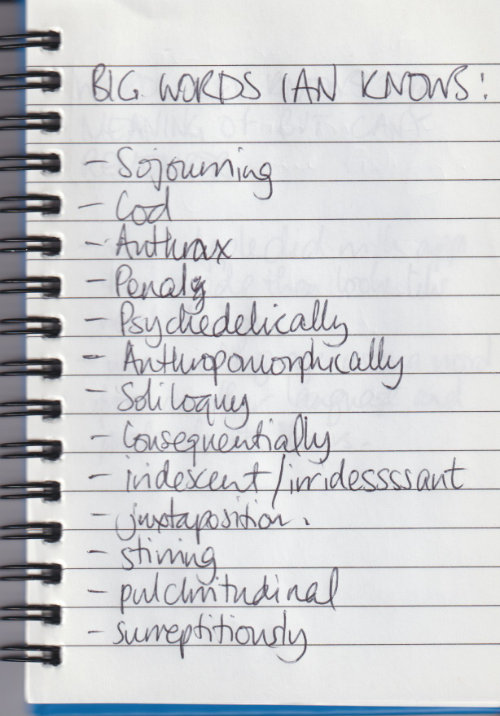 BIG WORDS IAN KNOWS:
- Sojourning
- Cod
- Anthrax
- Penaly
- Psychedelically
- Anthropomorphically
- Soliloquy
- Consequentially
- iridescent/irridessssant
- juxtaposition.
- stirring
- pulchritudinal
- surreptitiously